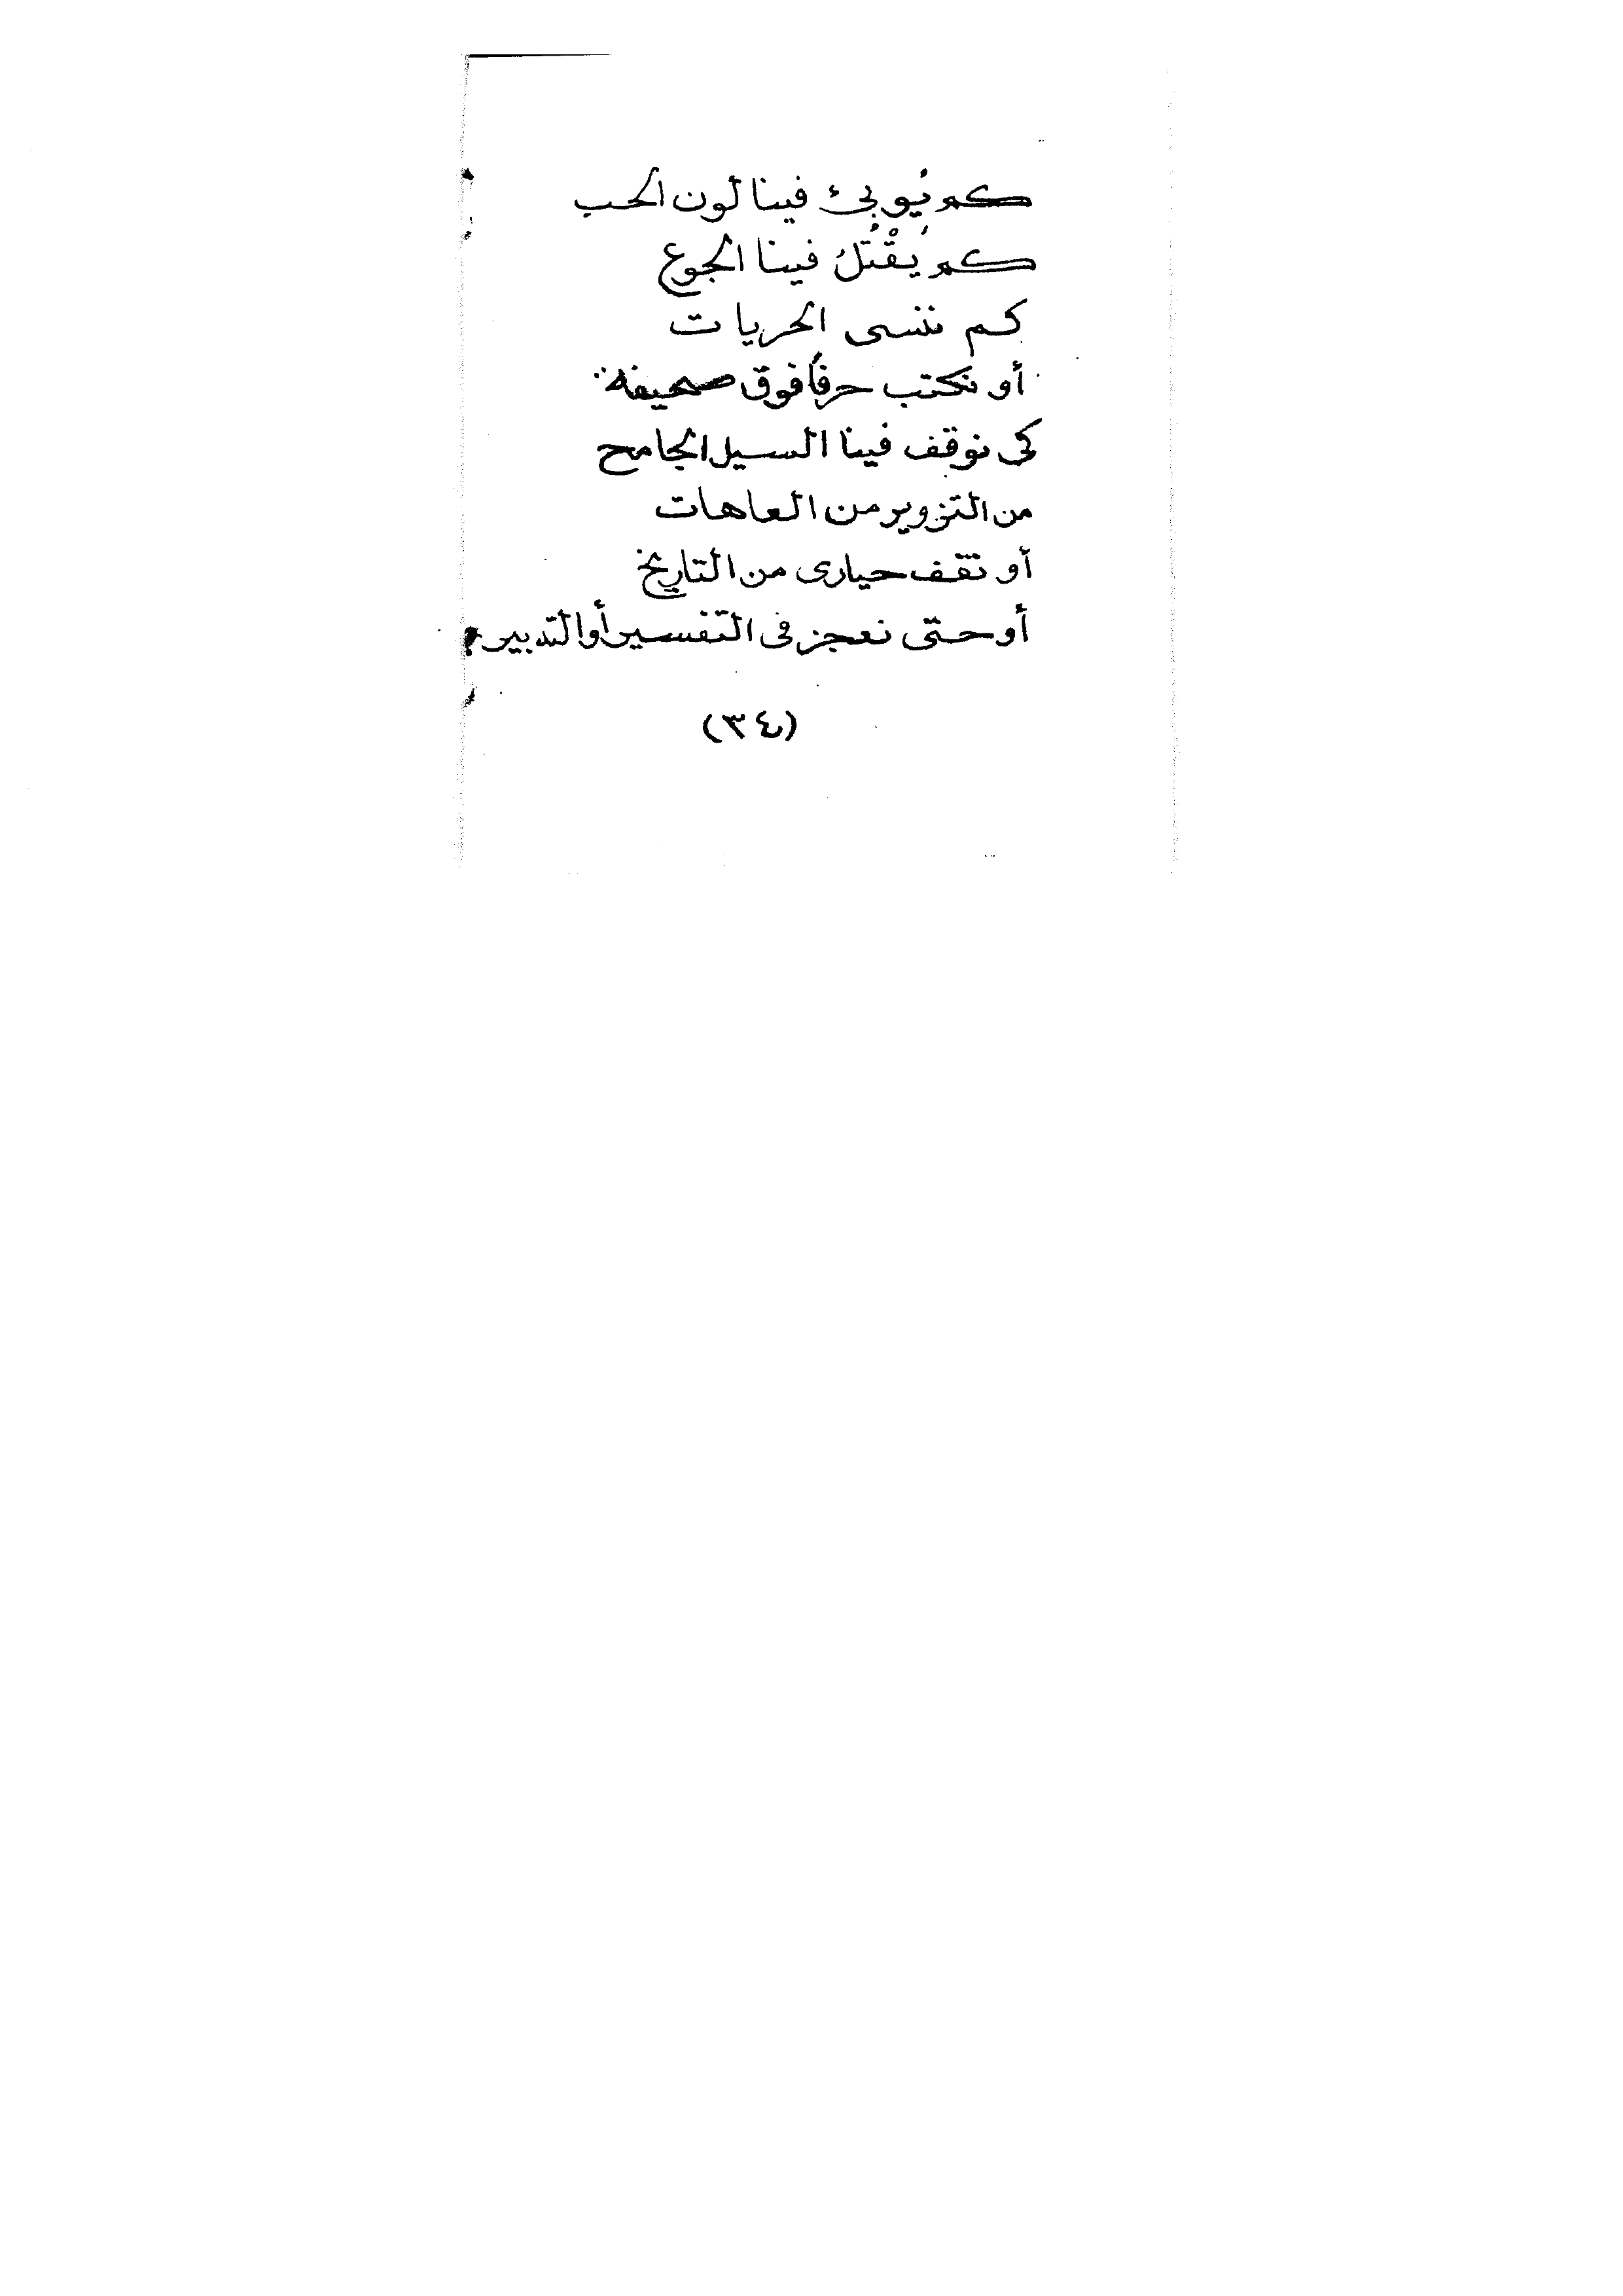 كم يُوبئ فينا لون الحب
كم يَقْتُلُ فينا الجوع
كم ننسى الحريات
أو نكتب حرفاً فوق صحيفة..
كى نوقف فينا السيل الجامح
من التزوير من العاهات
أو نقف حيارى من التاريخ
أو حتى نعجز فى التفسير أو التدبير
(٣٤)